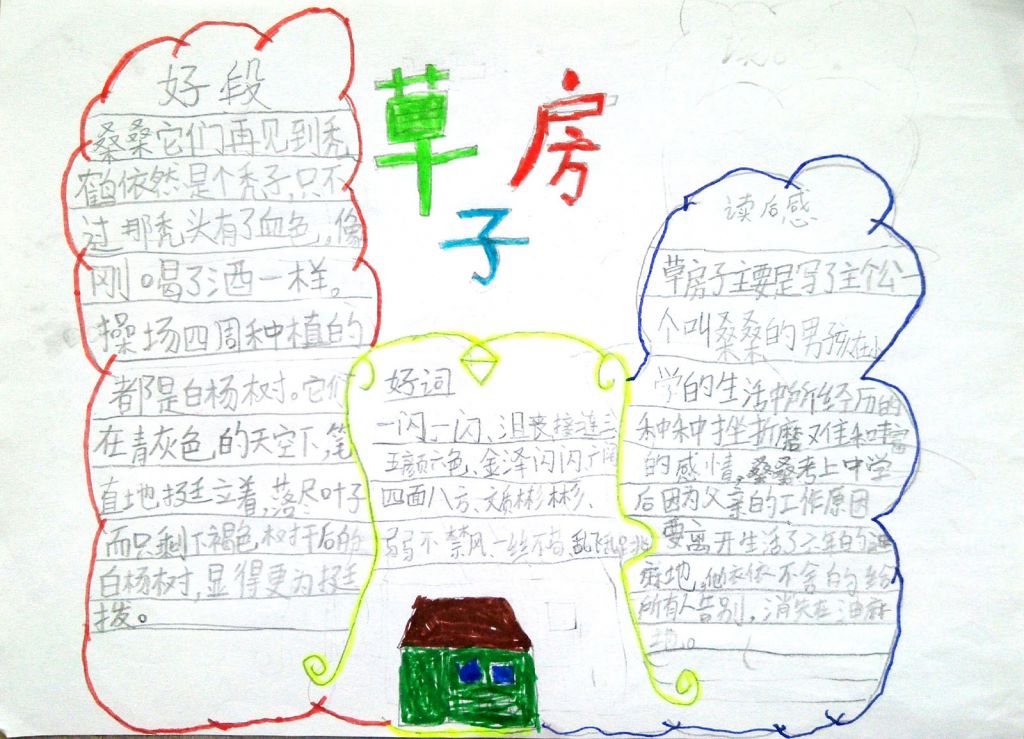 草房子
好段
桑桑它们再见到秃
鹤依然是个秃子,只不
过那秃头有了血色,像
刚喝了洒一样。
操场四周种植的
都是白杨树。它们
在青灰色的天空下,笔
直地挺立着,落尽叶子
而只剩下褐色树干后的
白杨树,显得更为挺
拨。
好词
一闪一闪、沮丧接连三
五颜六色、金泽闪闪广阔
四面八方、文质彬彬、
弱不禁风、一丝不苟、乱飞
读后感
草房子主要是写了主人公一
个叫桑桑的男孩在小
学的生活中所经历的
种种挫折磨难和丰富
的感情,桑桑考上中学
后因为父亲的工作原因
要离开生活了六年的油
麻地,他依依不舍的给
所有人告别,消失在油麻
地。